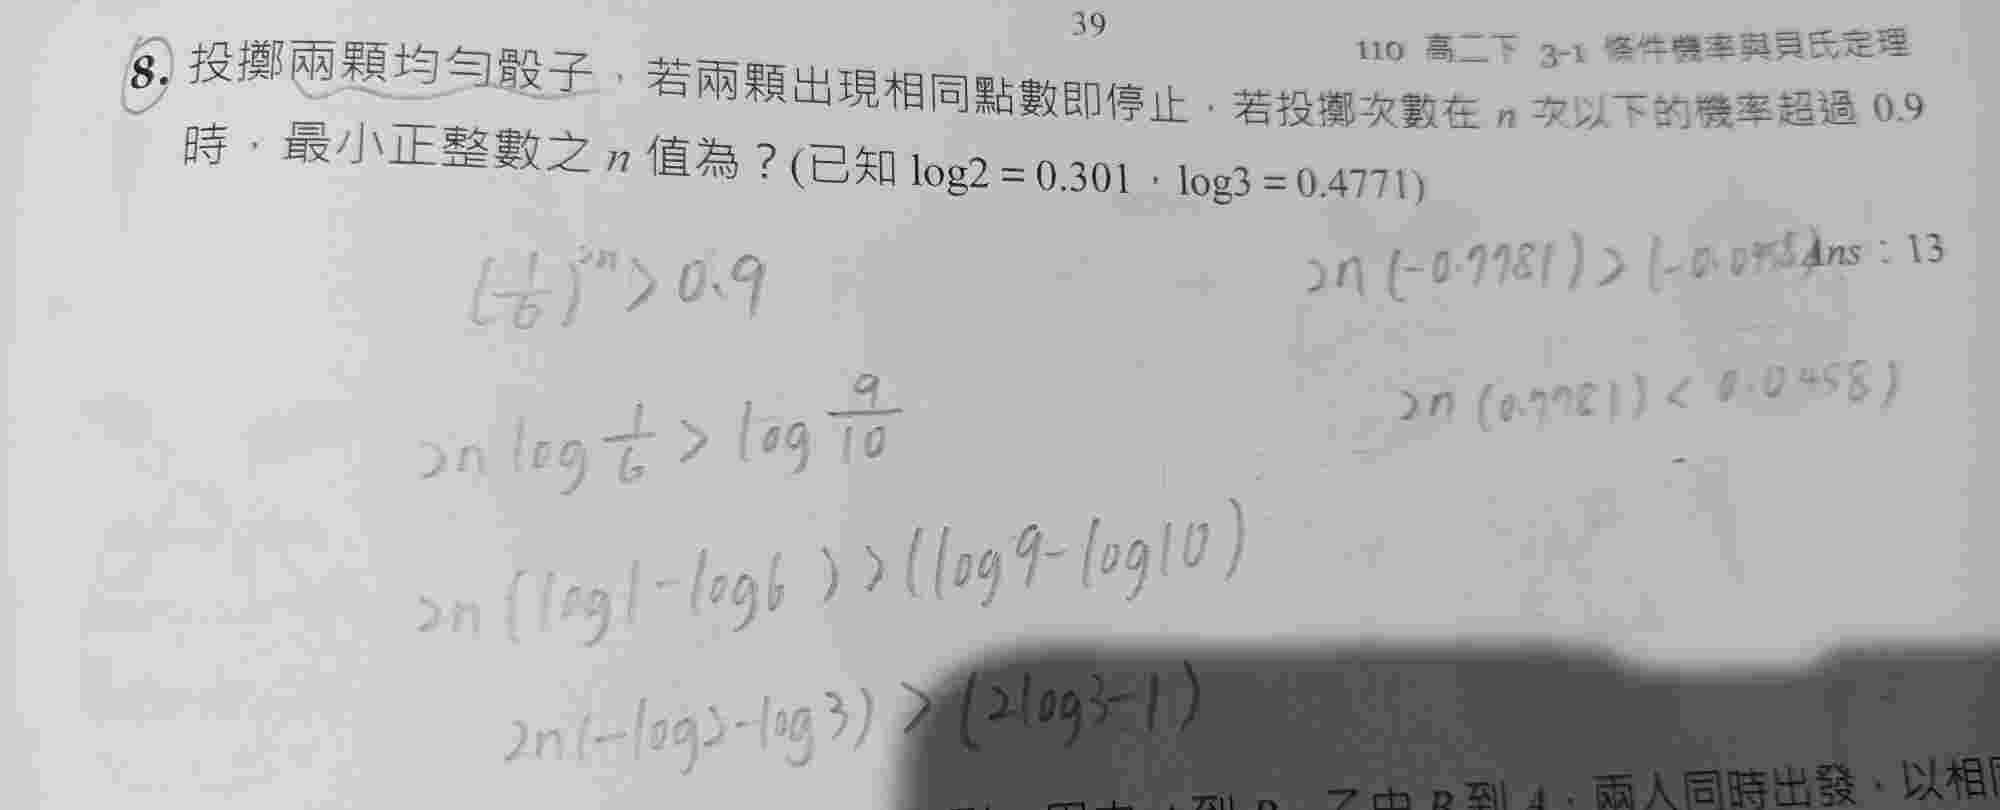 39
110 高二下 3-1 條件機率與貝氏定理
8. 投擲兩顆均勻骰子，若兩顆出現相同點數即停止，若投擲次數在 n 次以下的機率超過 0.9
時，最小正整數之 n 值為？(已知 log2 = 0.301，log3 = 0.4771)
Ans：13
(1/6)^2n > 0.9
2n log 1/6 > log 9/10
2n (log1-log6) > (log9-log10)
2n(-log2-log3) > (2log3-1)
2n (-0.7781) > (-0.0458)
2n (0.7781) < 0.0458)
到 B 乙由 B 到 A，兩人同時出發，以相